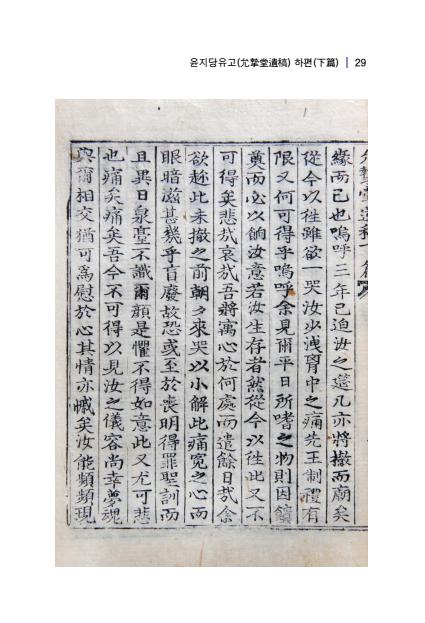 윤지당유고(允摯堂遺稿) 하편(下篇) | 29
允摯堂遺稿下篇
緣而已也嗚呼三年已迫汝之筵几亦將撤而廟矣
從今以徃雖欲一哭汝少洩胷中之痛先王制禮有
限又何可得乎嗚呼余見爾平日所嗜之物則因饋
奠而必以餉汝意若汝生存者然從今以徃此又不
可得矣悲哉哀哉吾將寓心於何處而遣餘日哉余
欲趁此未撤之前朝夕來哭以小解此痛寃之心而
眼暗滋甚幾乎盲廢故恐或至於喪明得罪聖訓而
且異日泉臺不識爾顔是懼不得如意此又尤可悲
也痛矣痛矣吾今不可得以見汝之儀容尚幸夢魂
與爾相交猶可爲慰於心其情亦慽矣汝能頻頻現